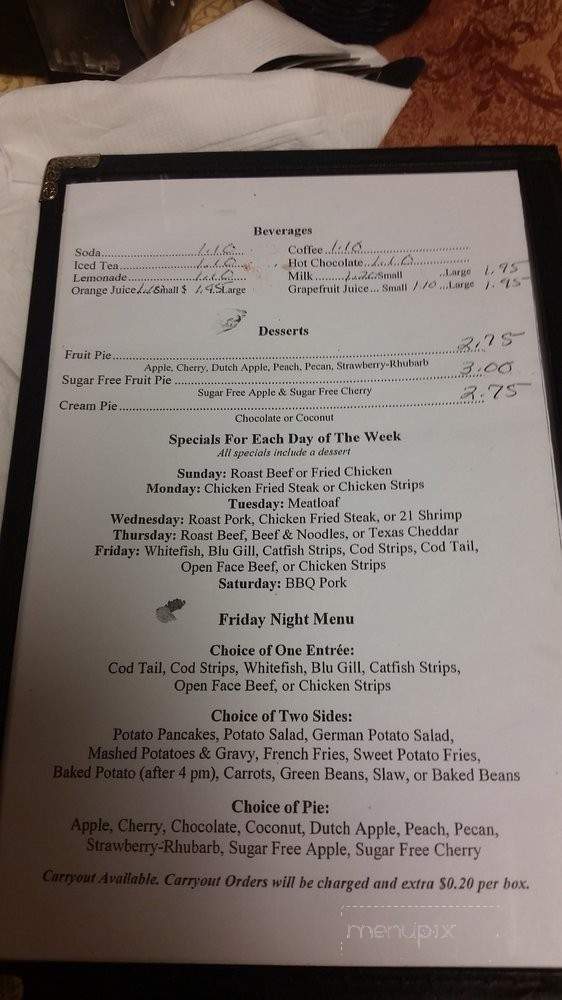 Beverages
Soda.....1.10.... Coffee...1.10....
Iced Tea.....1.10.... Hot Chocolate...1.10....
Lemonade.....1.10.... Milk.....Small ...Large 1.95
Orange Juice Small $ 1.95 Large Grapefruit Juice... Small 1.10 ...Large 1.95
Desserts
Fruit Pie..... 2.75
Apple, Cherry, Dutch Apple, Peach, Pecan, Strawberry-Rhubarb
Sugar Free Fruit Pie ..... 3.00
Sugar Free Apple & Sugar Free Cherry
Cream Pie..... 2.75
Chocolate or Coconut
Specials For Each Day of The Week
All specials include a dessert
Sunday: Roast Beef or Fried Chicken
Monday: Chicken Fried Steak or Chicken Strips
Tuesday: Meatloaf
Wednesday: Roast Pork, Chicken Fried Steak, or 21 Shrimp
Thursday: Roast Beef, Beef & Noodles, or Texas Cheddar
Friday: Whitefish, Blu Gill, Catfish Strips, Cod Strips, Cod Tail,
Open Face Beef, or Chicken Strips
Saturday: BBQ Pork
Friday Night Menu
Choice of One Entrée:
Cod Tail, Cod Strips, Whitefish, Blu Gill, Catfish Strips,
Open Face Beef, or Chicken Strips
Choice of Two Sides:
Potato Pancakes, Potato Salad, German Potato Salad,
Mashed Potatoes & Gravy, French Fries, Sweet Potato Fries,
Baked Potato (after 4 pm), Carrots, Green Beans, Slaw, or Baked Beans
Choice of Pie:
Apple, Cherry, Chocolate, Coconut, Dutch Apple, Peach, Pecan,
Strawberry-Rhubarb, Sugar Free Apple, Sugar Free Cherry
Carryout Available. Carryout Orders will be charged and extra $0.20 per box.
menupix